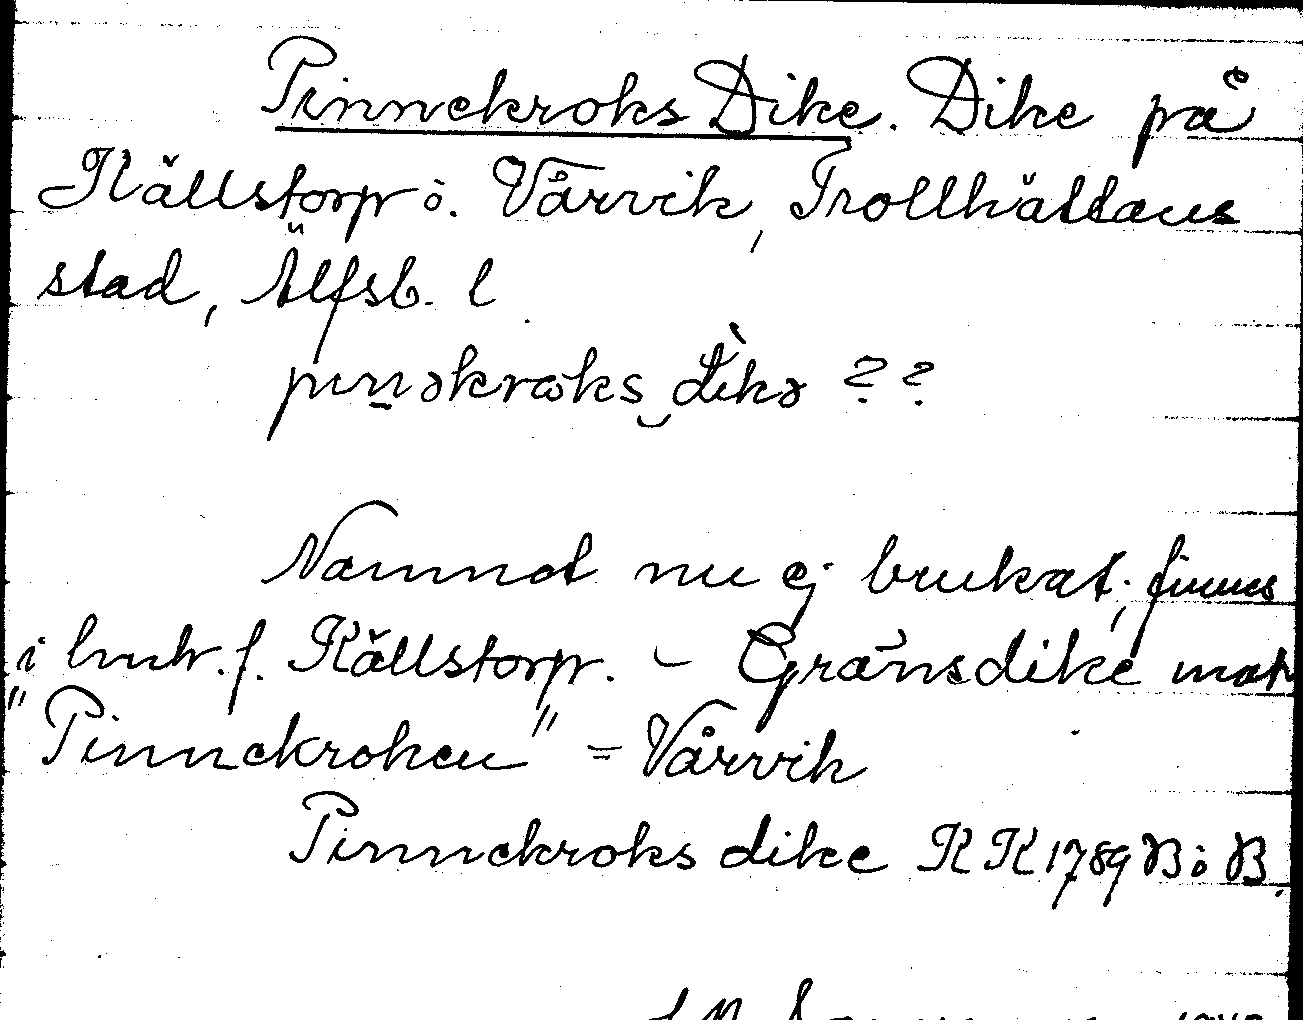 Pinnekroks Dike. Dike på
Källstorp o. Vårvik, Trollhättans
stad, Älfsb. l
pinəkroks dikə ??
Namnet nu ej brukat; finnes
i lmtr. f. Källstorp. – Gränsdike mot
"Pinnekroken" = Vårvik
Pinnekroks dike KK 1789 B ö B.